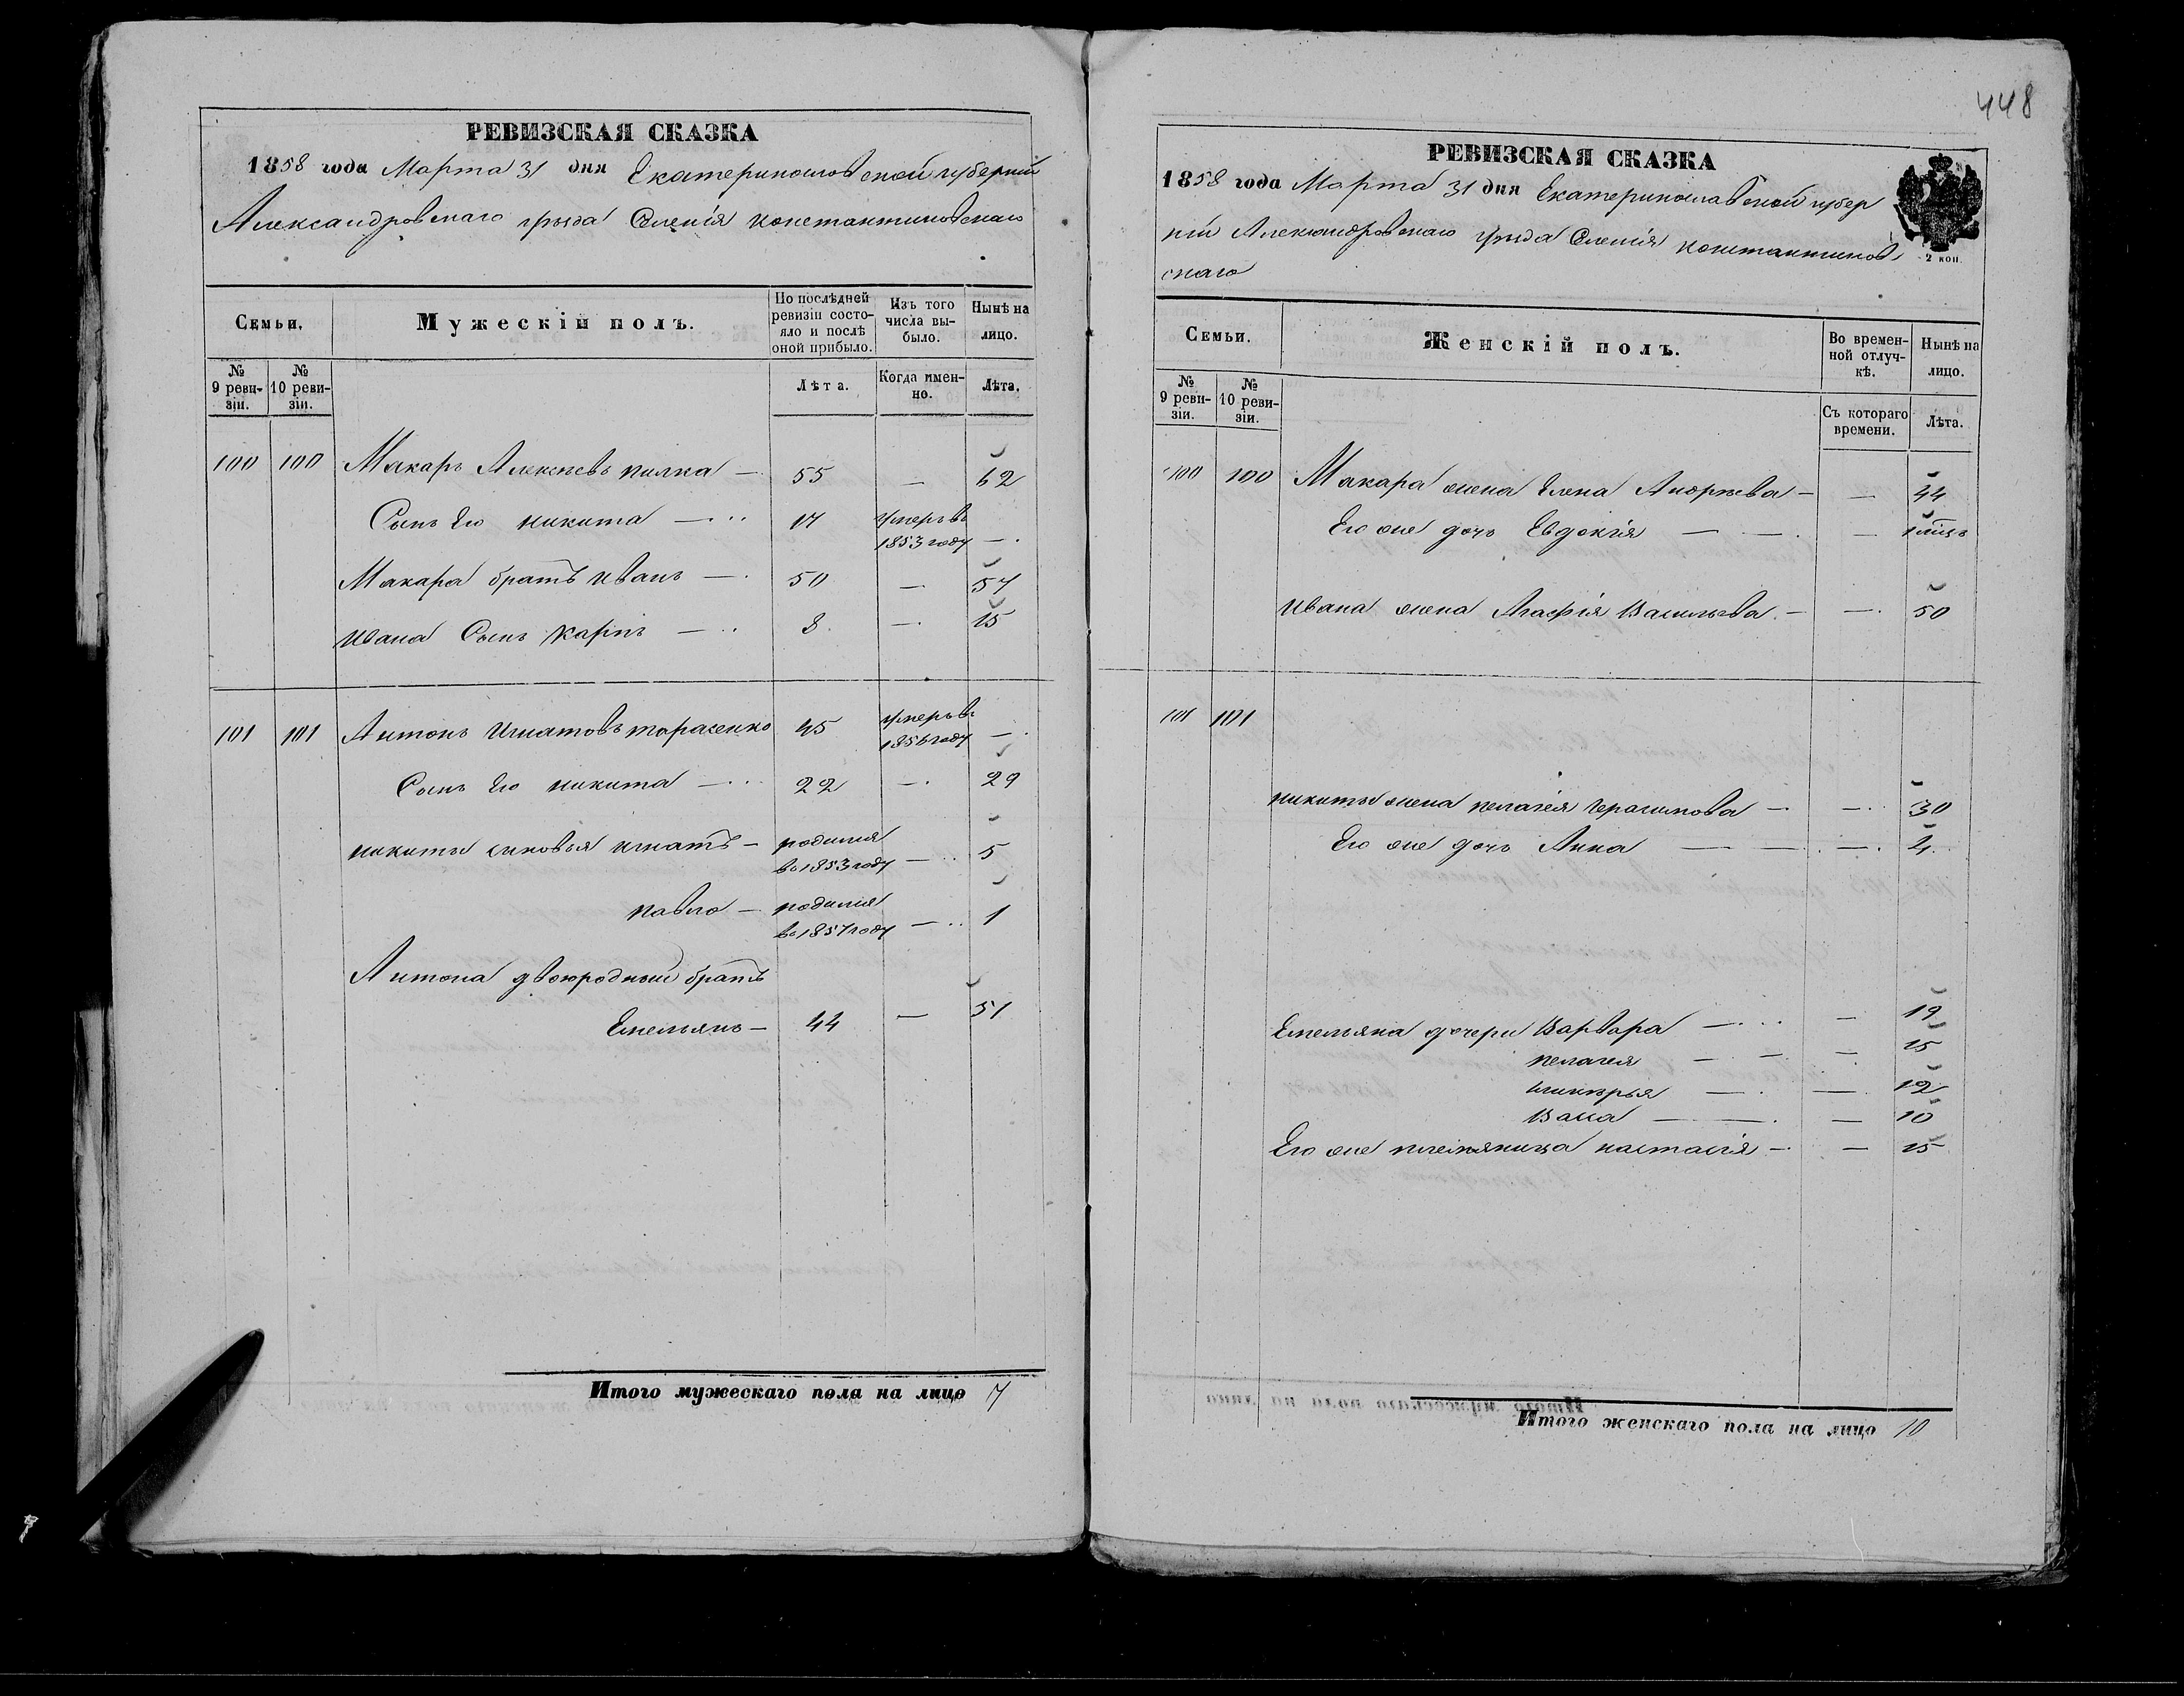 448
РЕВИЗСКАЯ СКАЗКА
1858 года Марта 31 дня Екатеринославской губерніи
Александровскаго уѣзда Селенія Константиновскаго
Семьи.
Мужескій полъ.
По послѣдней ревизіи состо-
яло и послѣ
оной прибыло.
Изъ того
числа вы-
было.
Нынѣ на
лицо.
№
9 реви-
зіи.
№
10 реви-
зіи.
Лѣта.
Когда имен-
но.
Лѣта.
100 100 Макаръ Алексѣевъ — 55 — 62
Сынъ его никита — 17 умеръ въ
1853 году —
Макара братъ иванъ — 50 — 57
ивана Сынъ карпъ — 8 — 15
101 101 Антонъ игнатовъ тарасенко 45 умеръ въ
1856 году —
Сынъ его никита — 22 — 29
никиты сыновья игнатъ — родился
въ 1853 году — 5
павло — родился
въ 1857 году — 1
Антона двоюродный братъ
Емельянъ — 44 — 51
Итого мужескаго пола на лицо 7
РЕВИЗСКАЯ СКАЗКА
1858 года Марта 31 дня Екатеринославской губер
ніи Александровскаго уѣзда Селенія константинов
скаго
2 коп.
Семьи.
Женскій полъ.
Во времен-
ной отлуч-
кѣ.
Нынѣ на
лицо.
№
9 реви-
зіи.
№
10 реви-
зіи.
Съ котораго
времени.
Лѣта.
100 100 Макара жена Елена Андрѣева — — 44
Его же дочь Евдокія — —
ивана жена Агафія Васильева — — 50
101 101
никиты жена пелагея герасимова — — 30
Его же дочь Анна — — 4
Емельяна дочери Варвара — — 19
пелагея — — 15
— — 12
Васса — — 10
Его же племяница настасія — — 15
Итого женскаго пола на лицо 10